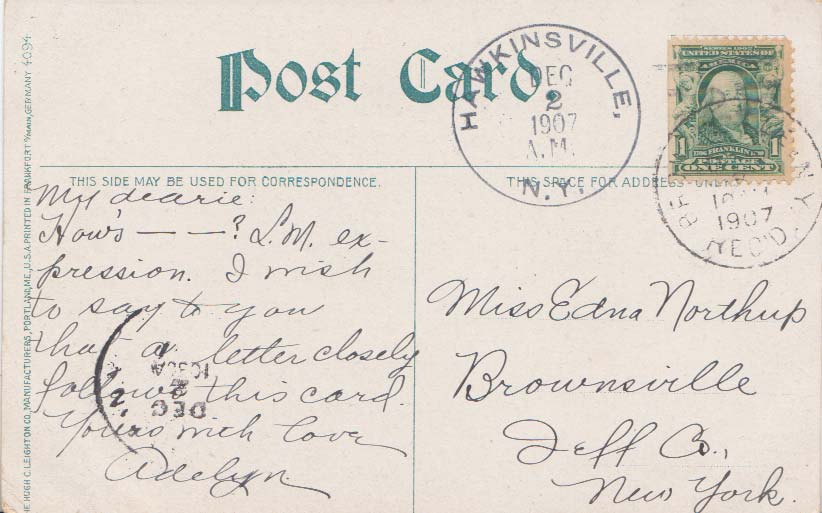 Post Card.
HAWKINSVILLE,
DEC
2
1907
A.M.
N.Y.
SERIES 1902
1 FRANKLIN 1
POSTAGE
ONE CENT
1907
REC'D
THIS SIDE MAY BE USED FOR CORRESPONDENCE.
THIS SPACE FOR ADDRESS ONLY
My dearie:
How's — — —? L.M. ex-
pression. I wish
to say to you
that a letter closely
follows this card.
Yours with love
Adelyn.
DEC
2
1030A
Miss Edna Northup
Brownsville
Jeff Co.,
New York.
HUGH C. LEIGHTON CO., MANUFACTURERS, PORTLAND, ME., U.S.A. PRINTED IN FRANKFORT O/MAIN, GERMANY 4094